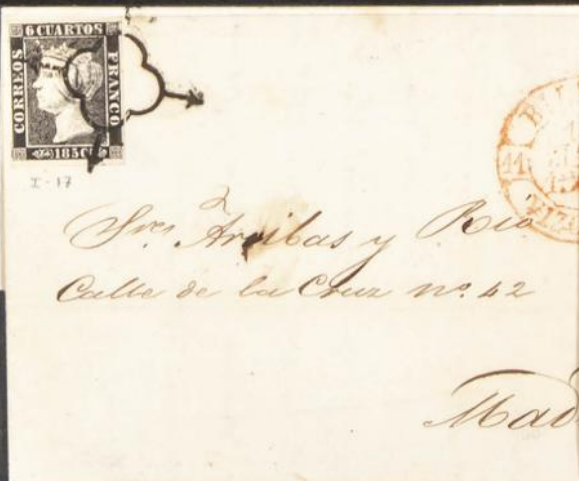 6 CUARTOS
CORREOS
FRANCO
1850
I-17
11
Sres. Arribas y Rio
Calle de la Cruz nº. 42
Mad